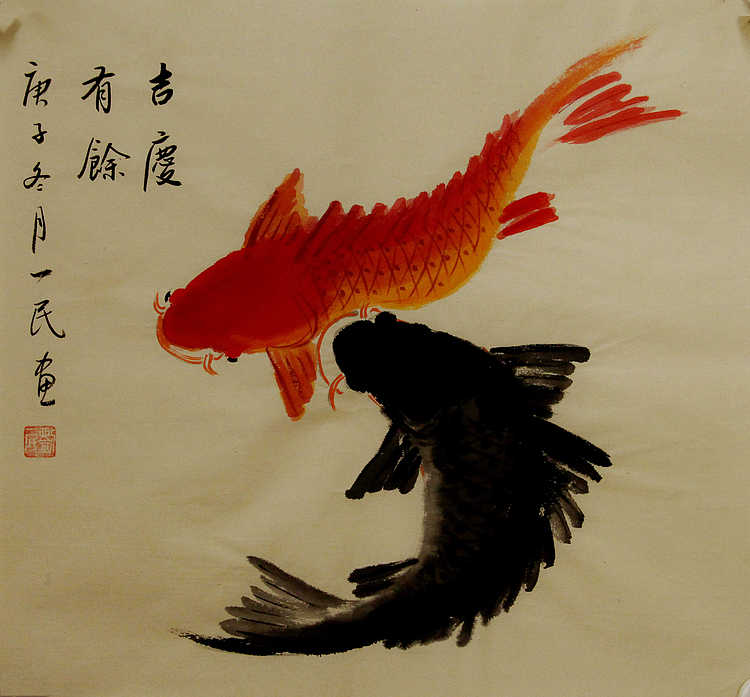 吉慶
有餘
庚子冬月一民画